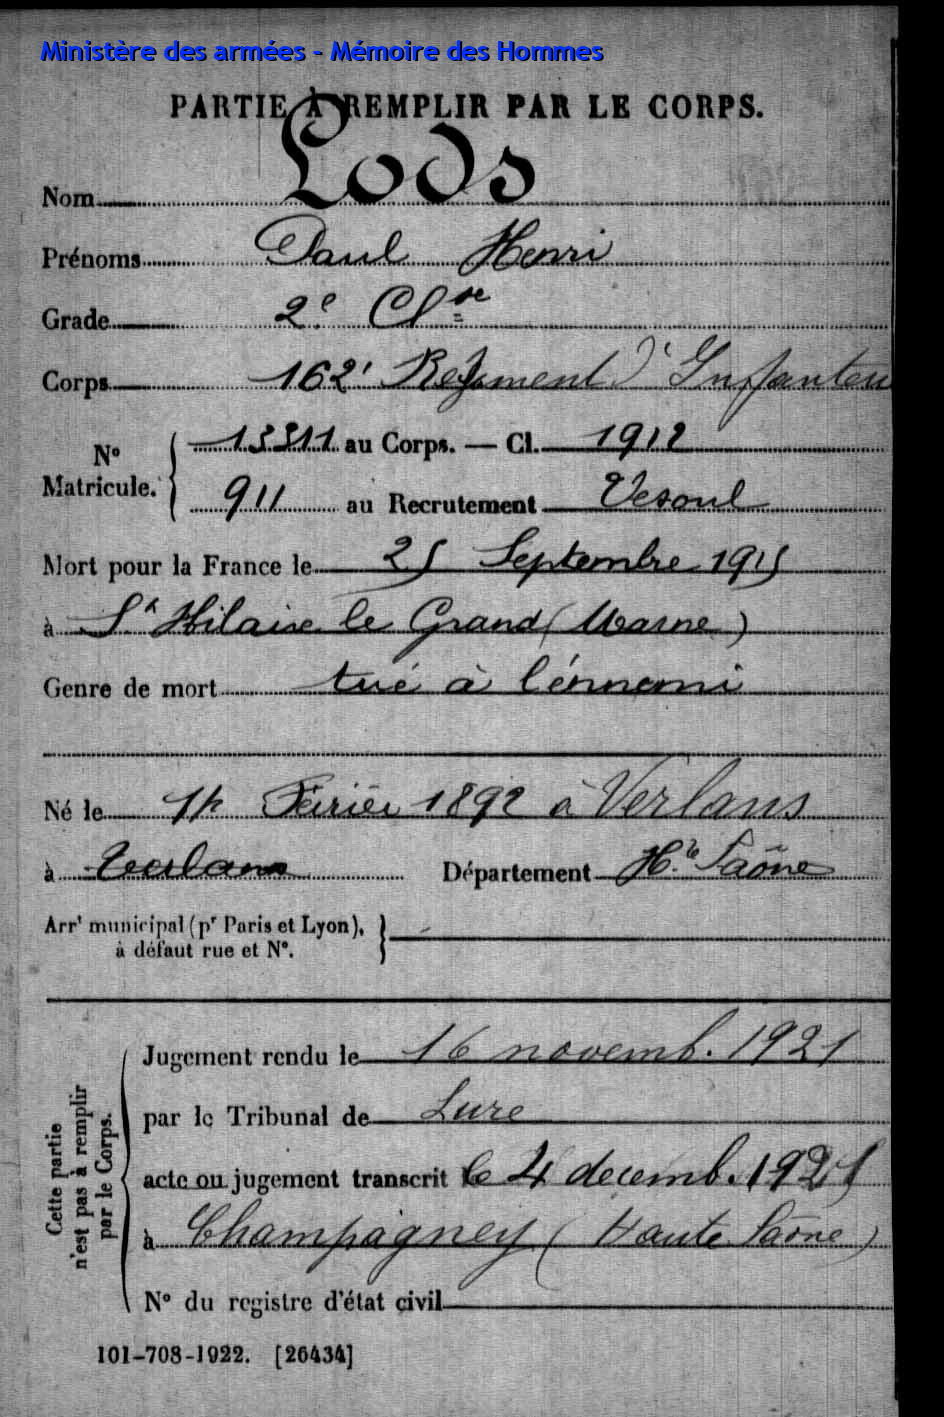 Ministère des armées - Mémoire des Hommes
PARTIE À REMPLIR PAR LE CORPS.
Nom Lods
Prénoms Paul Henri
Grade 2e Clsse
Corps 162e Régiment d'Infanterie
N° Matricule. 13311 au Corps. — Cl. 1912
911 au Recrutement Vesoul
Mort pour la France le 25 Septembre 1915
à St Hilaire le Grand (Marne)
Genre de mort tué à l'énnemi
Né le Février 1892 à Verlans
à Verlans Département Hte Saône
Arrt municipal (pr Paris et Lyon),
à défaut rue et N°.
Cette partie
n'est pas à remplir
par le Corps.
Jugement rendu le 16 novemb. 1921
par le Tribunal de Lure
acte ou jugement transcrit le 4 decemb. 1921
à Champagney (Haute Saône)
N° du registre d'état civil
101-708-1922. [26434]